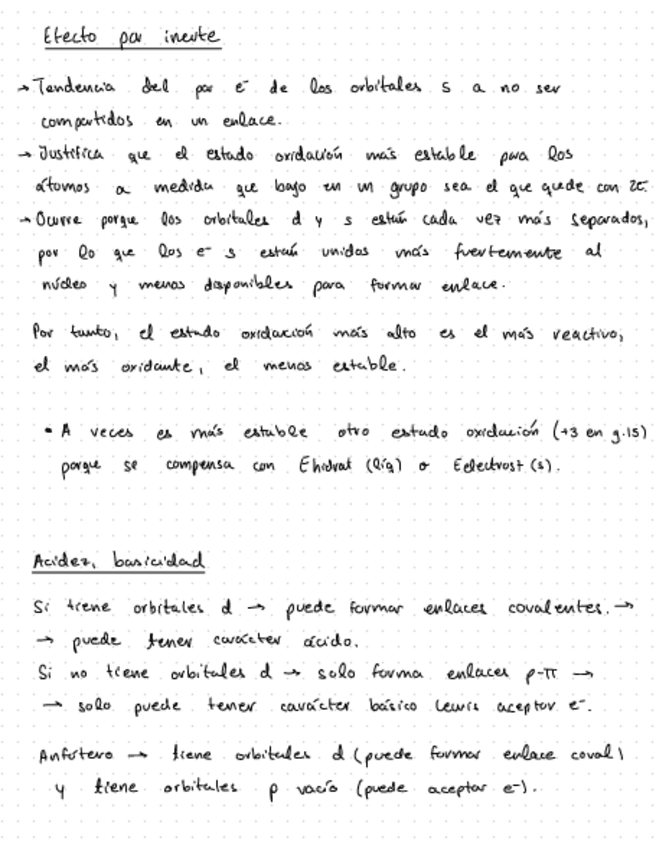 Efecto par inerte
→ Tendencia del par e⁻ de los orbitales s a no ser
compartidos en un enlace.
→ Justifica que el estado oxidación más estable para los
átomos a medida que bajo en un grupo sea el que quede con 2e⁻.
→ Ocurre porque los orbitales d y s están cada vez más separados,
por lo que los e⁻ s están unidos más fuertemente al
núcleo y menos disponibles para formar enlace.
Por tanto, el estado oxidación más alto es el más reactivo,
el más oxidante, el menos estable.
• A veces es más estable otro estado oxidación (+3 en g.15)
porque se compensa con Ehidrat (líq) o Eelectrost (s).
Acidez, basicidad
Si tiene orbitales d → puede formar enlaces covalentes. →
→ puede tener carácter ácido.
Si no tiene orbitales d → solo forma enlaces p-π →
→ solo puede tener carácter básico Lewis aceptor e⁻.
Anfótero → tiene orbitales d (puede formar enlace coval)
y tiene orbitales p vacío (puede aceptar e⁻).